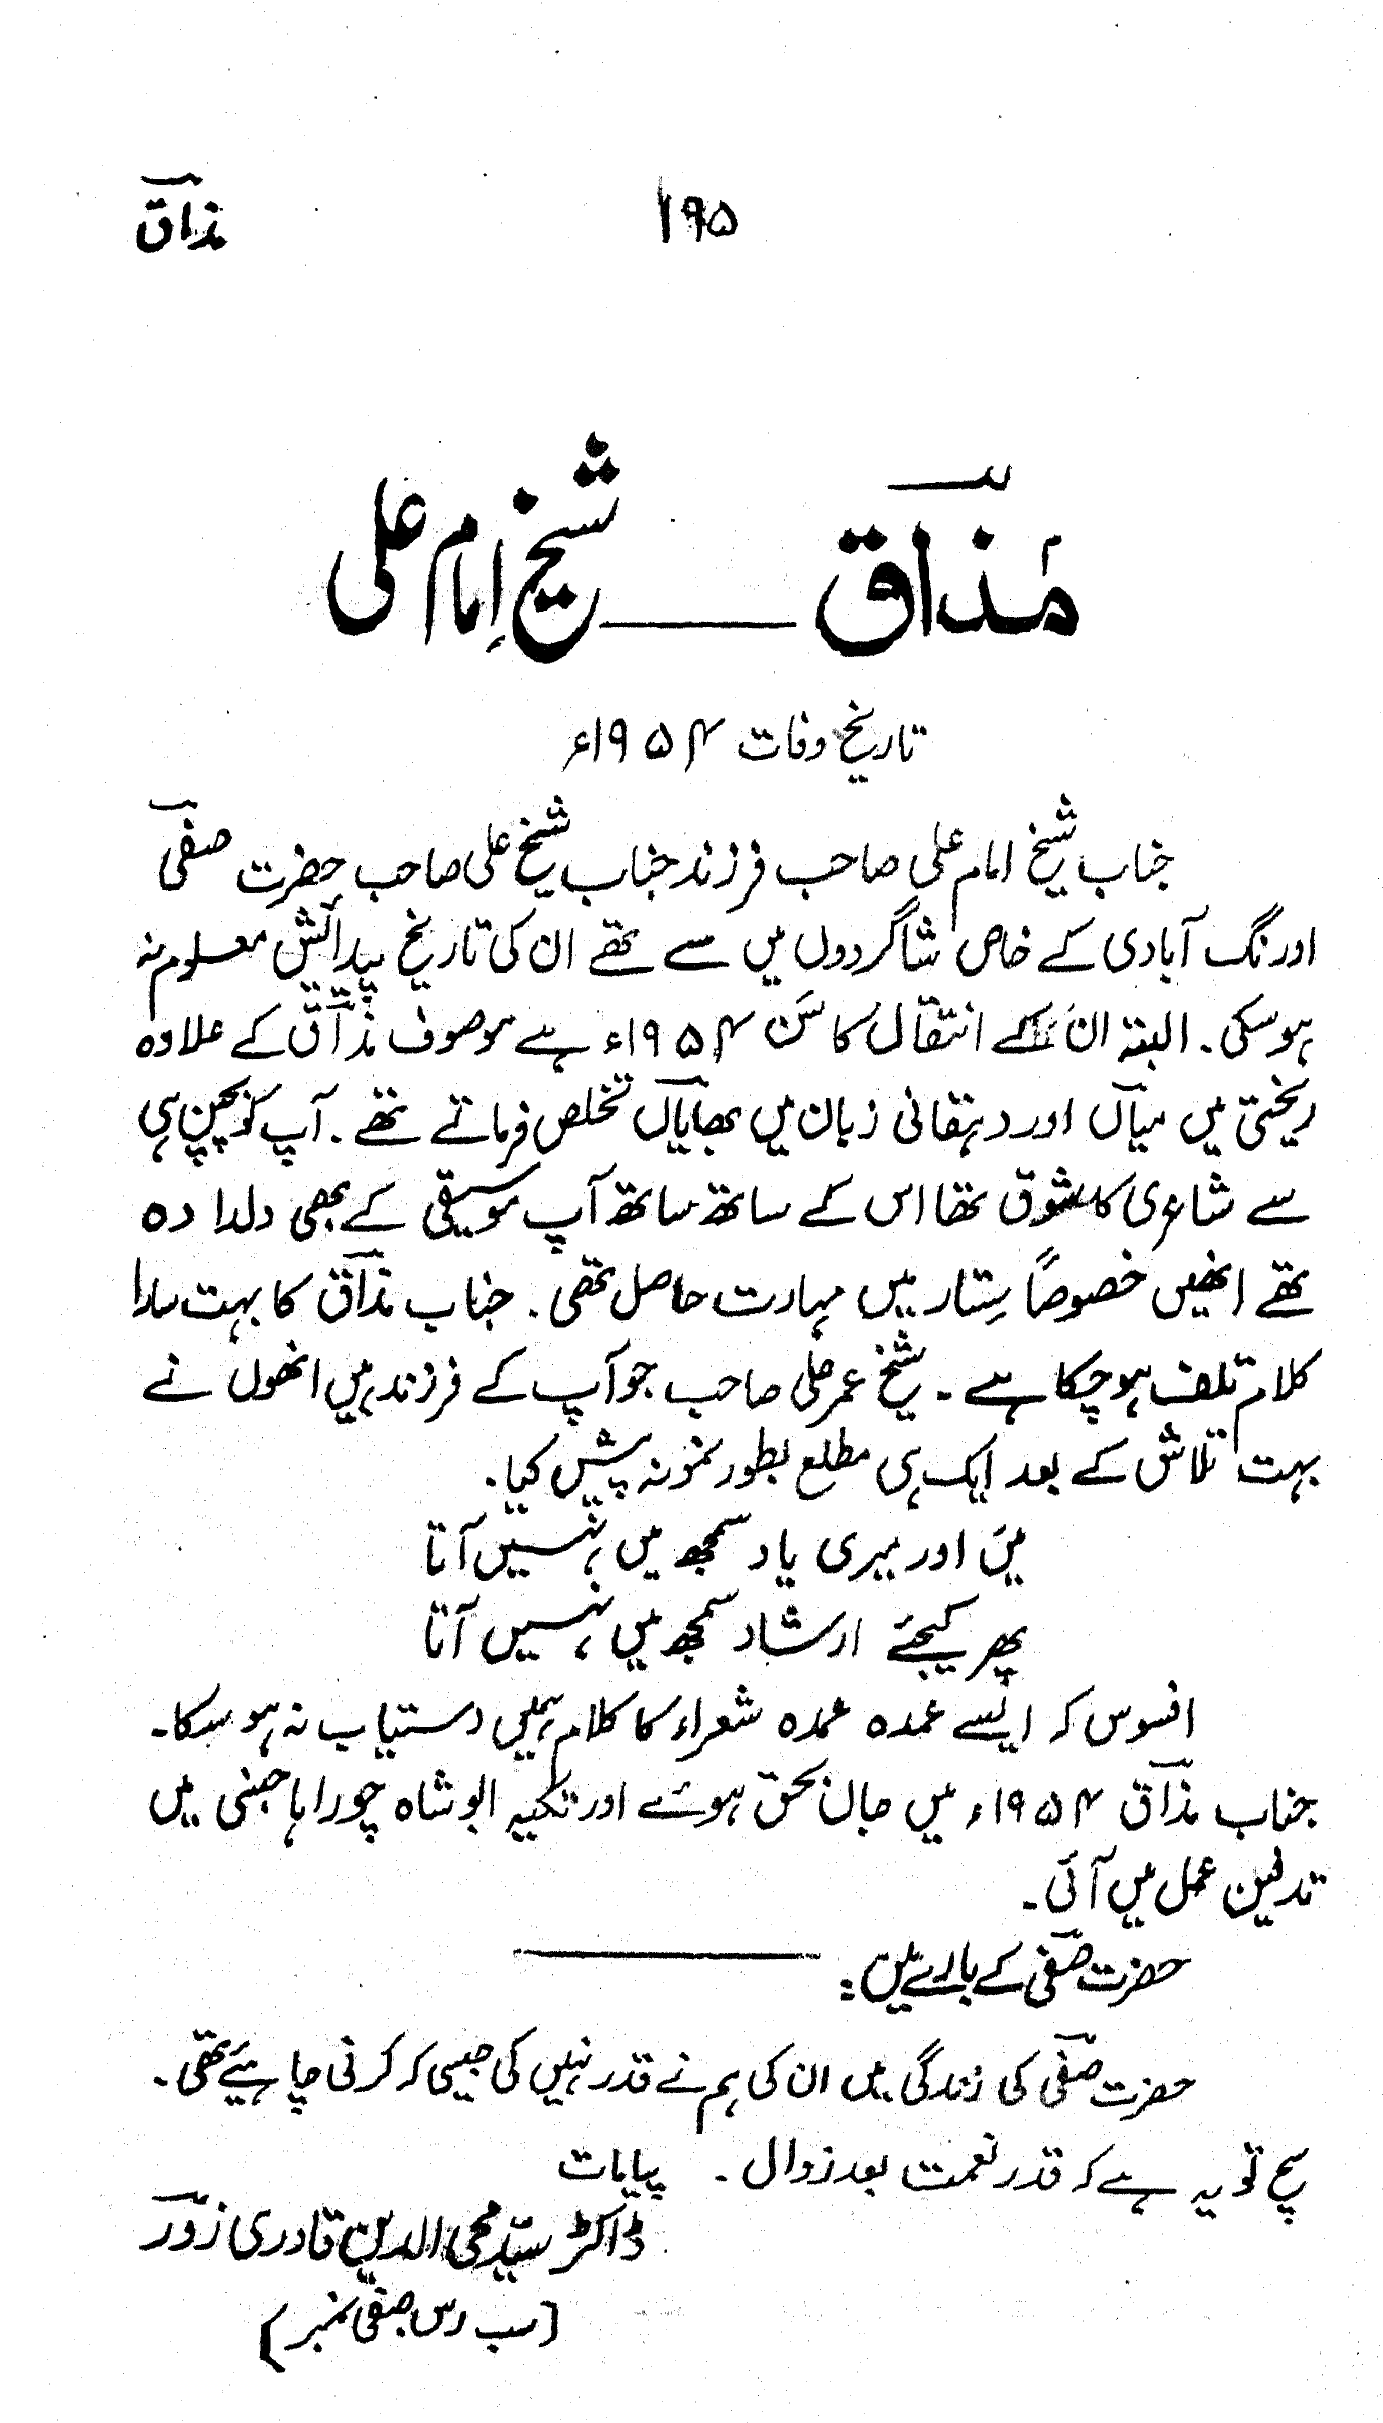 مذاقؔ
۱۹۵
مَذاقؔ ــــــ شیخ اِمام علی
تاریخ وفات ۱۹۵۴ء
جناب شیخ امام علی صاحب فرزند جناب شیخ علی صاحب حضرت صفیؔ
اورنگ آبادی کے خاص شاگردوں میں سے تھے ان کی تاریخ پیدائش معلوم نہ
ہوسکی۔ البتہ ان کے انتقال کا سَن ۱۹۵۴ء ہے موصوف مذاقؔ کے علاوہ
ریختی میں میاںؔ اور دہقانی زبان میں بھایاںؔ تخلص فرماتے تھے۔ آپ کو بچپن ہی
سے شاعری کا شوق تھا اس کے ساتھ ساتھ آپ موسیقی کے بھی دلدادہ
تھے انھیں خصوصاً سِتار میں مہارت حاصل تھی۔ جناب مذاقؔ کا بہت سارا
کلام تلف ہوچکا ہے۔ شیخ عمر علی صاحب جو آپ کے فرزند ہیں انھوں نے
بہت تلاش کے بعد ایک ہی مطلع بطور نمونہ پیش کیا۔
میں اور میری یاد سمجھ میں نہیں آتا
پھر کیجئے ارشاد سمجھ میں نہیں آتا
افسوس کہ ایسے عمدہ عمدہ شعراء کا کلام ہمیں دستیاب نہ ہو سکا۔
جناب مذاقؔ ۱۹۵۴ء میں جاں بحق ہوئے اور تکیہ ابو شاہ چوراہا جنسی میں
تدفین عمل میں آئی۔
حضرت صفیؔ کے بارے میں:
حضرت صفیؔ کی زندگی میں ان کی ہم نے قدر نہیں کی جیسی کہ کرنی چاہیئے تھی۔
سچ تو یہ ہے کہ قدر نعمت بعد زوال۔ پیامات
ڈاکٹر سیّد محی الدین قادری زورؔ
(سب رس صفی نمبر)